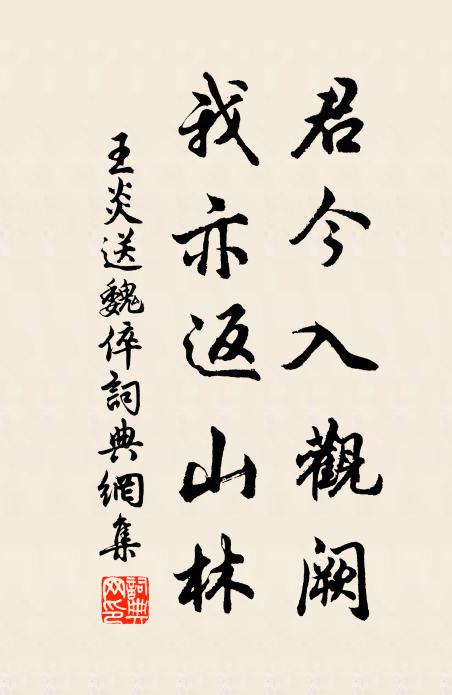 君今入觀闕
我亦返山林
王炎送魏倅詞典網集
詞典
网印